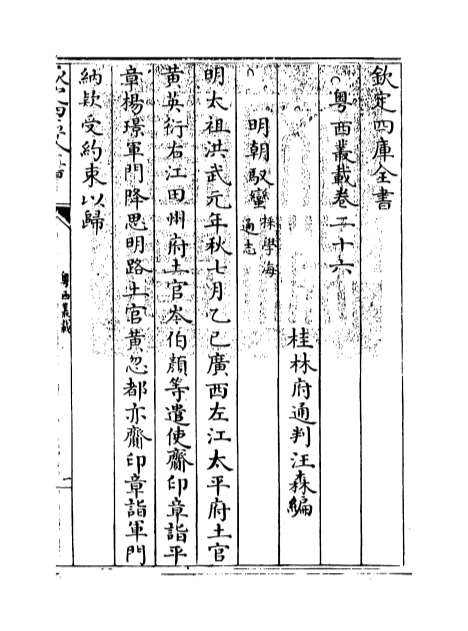 欽定四庫全書
粵西叢載卷二十六
桂林府通判汪森編
明朝馭蠻
採學海
通志
明太祖洪武元年秋七月乙巳廣西左江太平府土官
黃英衍右江田州府土官岑伯顏等遣使齎印章詣平
章楊璟軍門降思明路土官黃忽都亦齎印章詣軍門
納欵受約束以歸
粵西叢載